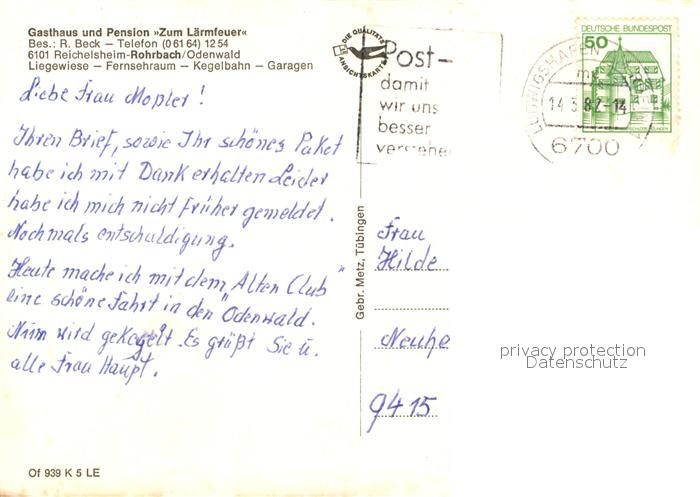 Gasthaus und Pension »Zum Lärmfeuer«
Bes.: R. Beck – Telefon (0 61 64) 12 54
6101 Reichelsheim-Rohrbach/Odenwald
Liegewiese – Fernsehraum – Kegelbahn – Garagen
DIE QUALITÄTS
ANSICHTSKARTE
Post-
damit
wir uns
besser
verstehen
LUDWIGSHAFEN
14.3.82-14
6700
DEUTSCHE BUNDESPOST
50
Liebe Frau Mopler!
Ihren Brief, sowie Ihr schönes Paket
habe ich mit Dank erhalten Leider
habe ich mich nicht früher gemeldet.
Nochmals entschuldigung.
Heute mache ich mit dem "Alten Club"
eine schöne Fahrt in den Odenwald.
Nun wird gekegelt. Es grüßt Sie u.
alle Frau Haupt.
Gebr. Metz, Tübingen
Frau
Hilde
Neuhe
9415
privacy protection
Datenschutz
Of 939 K 5 LE